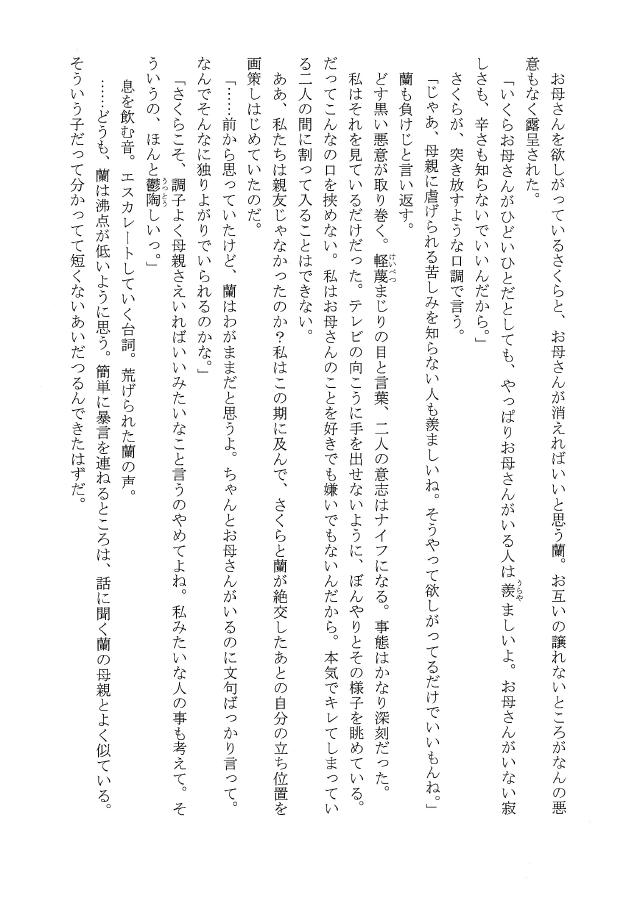 お母さんを欲しがっているさくらと、お母さんが消えればいいと思う蘭。お互いの譲れないところがなんの悪
意もなく露呈された。
「いくらお母さんがひどいひとだとしても、やっぱりお母さんがいる人は羨ましいよ。お母さんがいない寂
しさも、辛さも知らないでいいんだから。」
さくらが、突き放すような口調で言う。
「じゃあ、母親に虐げられる苦しみを知らない人も羨ましいね。そうやって欲しがってるだけでいいもんね。」
蘭も負けじと言い返す。
どす黒い悪意が取り巻く。軽蔑まじりの目と言葉、二人の意志はナイフになる。事態はかなり深刻だった。
私はそれを見ているだけだった。テレビの向こうに手を出せないように、ぼんやりとその様子を眺めている。
だってこんなの口を挟めない。私はお母さんのことを好きでも嫌いでもないんだから。本気でキレてしまってい
る二人の間に割って入ることはできない。
ああ、私たちは親友じゃなかったのか？私はこの期に及んで、さくらと蘭が絶交したあとの自分の立ち位置を
画策しはじめていたのだ。
「……前から思っていたけど、蘭はわがままだと思うよ。ちゃんとお母さんがいるのに文句ばっかり言って。
なんでそんなに独りよがりでいられるのかな。」
「さくらこそ、調子よく母親さえいればいいみたいなこと言うのやめてよね。私みたいな人の事も考えて。そ
ういうの、ほんと鬱陶しいっ。」
息を飲む音。エスカレートしていく台詞。荒げられた蘭の声。
……どうも、蘭は沸点が低いように思う。簡単に暴言を連ねるところは、話に聞く蘭の母親とよく似ている。
そういう子だって分かってて短くないあいだつるんできたはずだ。